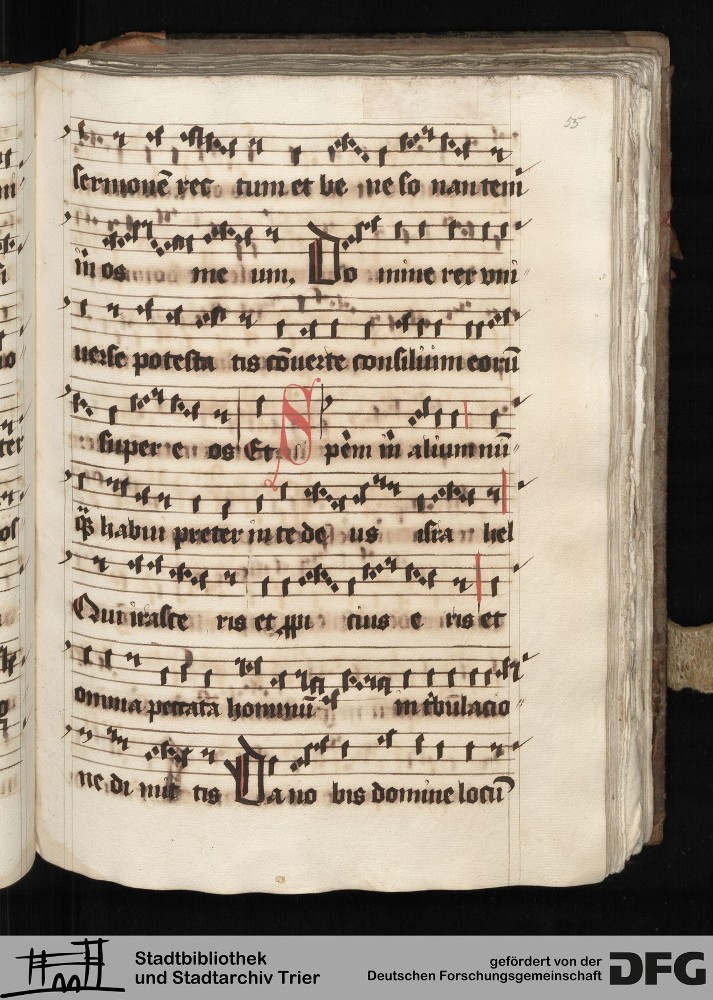 55
sermonē rec tum et be ne so nantem
in os me um. Do mine rex vni
uerse potesta tis cōuerte consilium eorū
super e os Et S pem in alium nū
qȝ habui preter in te de us isra hel
Qui irasce ris et ꝓpi cius e ris et
omnia peccata hominū in tbulacio
ne di mit tis Da no bis domine locū
Stadtbibliothek
und Stadtarchiv Trier
gefördert von der
Deutschen Forschungsgemeinschaft
DFG